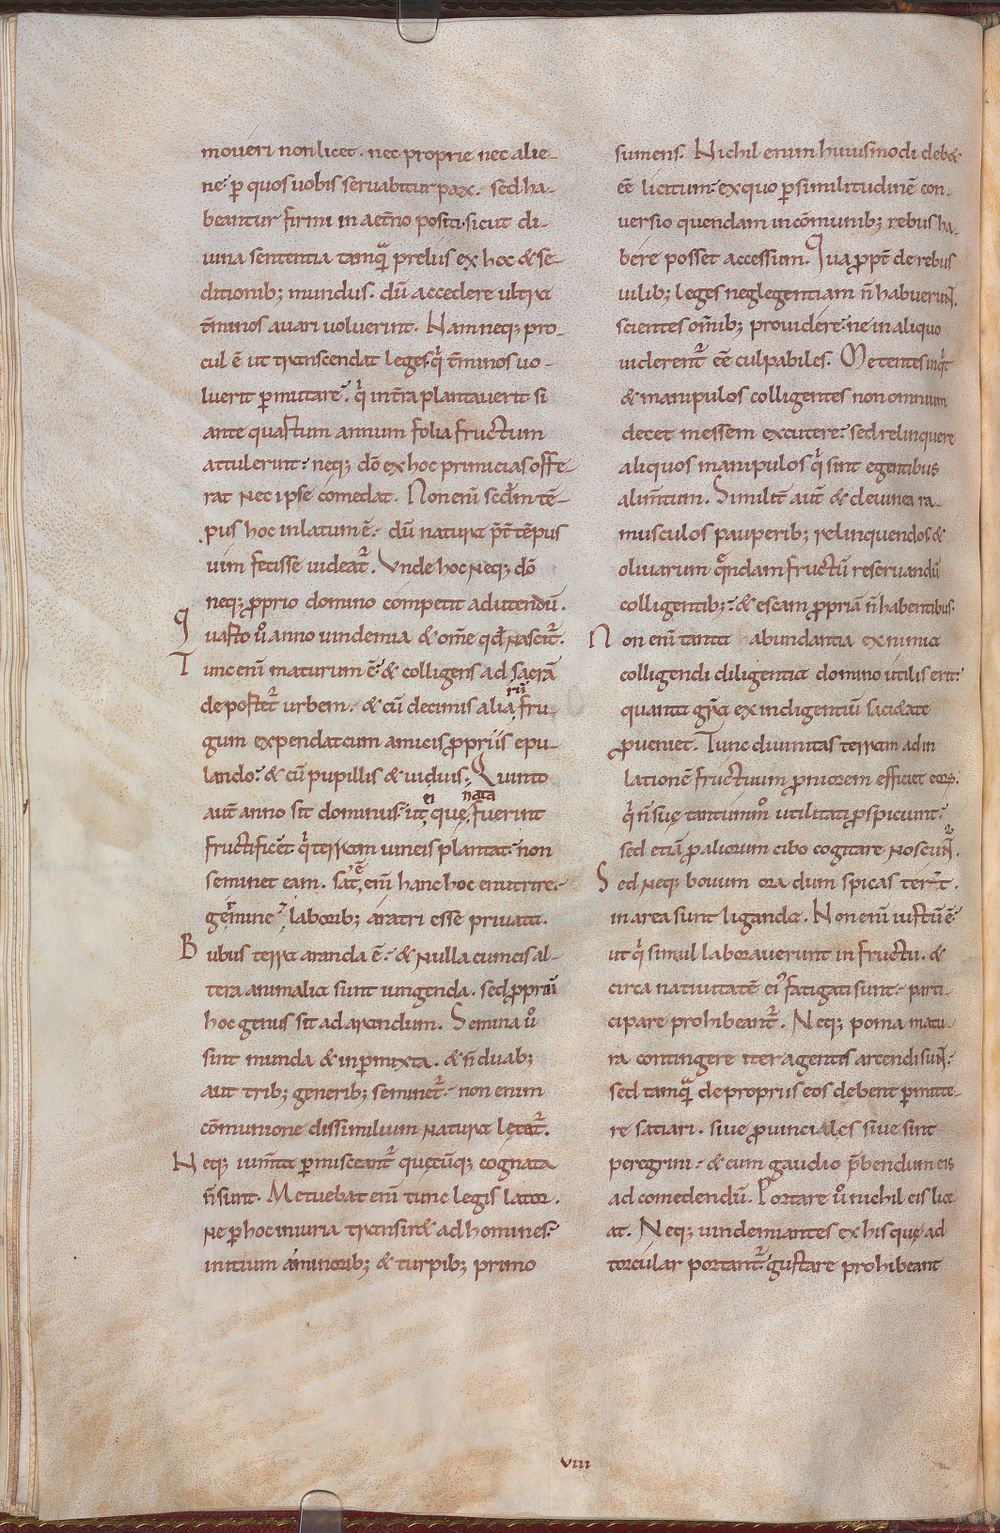 moueri non licet. nec proprie nec alie-
ne. ꝑ quos uobis seruabitur pax. sed ha-
beantur firmi in aet̄no positi. sicut di-
uina sententia tamq̄ prelus ex hoc & se-
ditionib; mundus. dū accedere ultra
t̄minos auari uoluerint. Nam neq; pro-
cul ē ut transcendat leges. q̇ t̄minos uo-
luerit ꝑmutare. q̇ int̄ra plantauerit si
ante quartum annum folia fructum
attulerint. neq; dō ex hoc primicias offe-
rat nec ipse comedat. Non enī scd̄m tē-
pus hoc inlatum ē. dū natura p̄t tēpus
uim fecisse uideat̄. Vnde hoc neq; dō
neq; ꝓprio domino competit ad utendū.
Quarto u̇ anno uindemia & om̄e qd̄ nascit̄.
Tunc enī maturum ē. & colligens ad sacrā
deportet̄ urbem. & cū decimis aliarū fru-
gum expendat cum amicis ꝓpriis epu-
lando. & cū pupillis & uiduis. Quinto
aut̄ anno sit dominus. ut ei quę nata fuerint
fructificet q̇ terram uineis plantat. non
seminet eam. Sat ē enī hanc hoc enutrire.
gemine laborib; aratri esse priuata.
Bubus terra aranda ē. & nulla cum eis al-
tera animalia sunt iungenda. sed ꝓpriū
hoc genus sit ad arandum. Semina u̇
sint munda & inꝑmixta. & n̄ duab;
aut trib; generib; seminet̄. non enim
cōmunione dissimilium natura lętat̄.
Neq; iumta ꝑmisceant̄ quęcūq; cognata
n̄ sunt. Metuebat enī tunc legis lator.
ne ꝑ hoc iniuria transir& ad homines.
initium aminorib; & turpib; primo
sumens. Nichil enim huiusmodi deb&
eē licitum. ex quo ꝑ similitudinē con-
uersio quendam in cōmunib; rebus ha-
bere posset accessum. Quaꝓpt̄ de rebus
uilib; leges neglegentiam n̄ habuerunt.
scientes om̄ib; prouidere. ne in aliquo
uiderent̄ eē culpabiles. Metentes inq̇t
& manipulos colligentes non omnium
decet messem excutere. sed relinquere
aliquos manipulos q̇ sint egentibus
alim̄tum. Similit̄ aut̄ & de uinea ra-
musculos pauperib; relinquendos. &
oliuarum q̄ndam fructū reseruandū
colligentib;. & escam ꝓpriā n̄ habentibus.
Non enī tanta abundantia ex nimia
colligendi diligentia domino utilis erit.
quanta gr̄a ex indigentiū
ꝓueniet. Tunc diuinitas terram ad in
lationē fructuum ꝓniorem efficiet eorꝫ.
q̇ n̄ suę tantummo utilitati ꝓspiciunt.
sed etiā ꝓ aliorum cibo cogitare noscunt̄.
Sed neq; bouum ora dum spicas ter̄t.
in area sunt liganda. Non enī iustū ē
ut q̇ simul laborauerunt in fructu. &
circa natiuitatē ei᾽ fatigati sunt. parti-
cipare prohibeant̄. Neq; poma matu-
ra contingere iter agentes arcendi sunt.
sed tamq̄ de propriis eos debent ꝑmitte-
re satiari. siue ꝓuinciales siue sint
peregrini. & cum gaudio p̄bendum eis
ad comedendū. Portare u̇ nichil eis lice
at. Neq; uindemiantes ex his quę ad
torcular portant̄. gustare prohibeant
viii